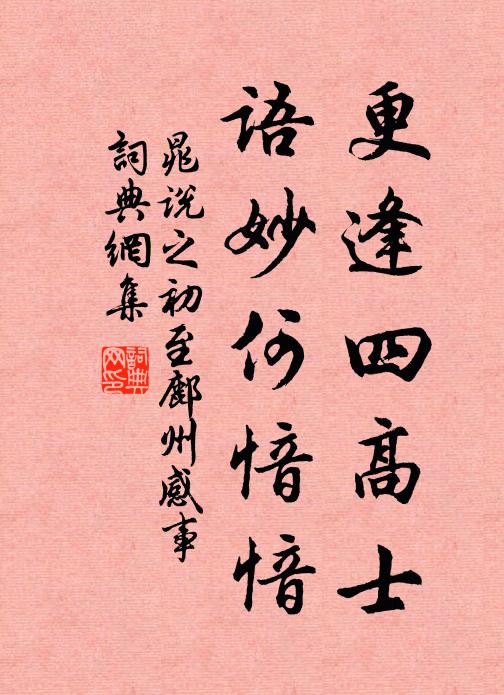 更逢四高士
語妙何愔愔
晁說之初至鄜州感事
詞典網集
詞典
网印